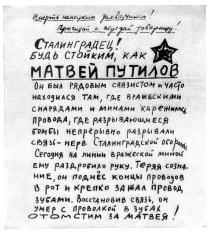 Смерть немецким оккупантам!
Прочитай и передай товарищу!
СТАЛИНГРАДЕЦ!
БУДЬ СТОЙКИМ, КАК
МАТВЕЙ ПУТИЛОВ
ОН БЫЛ РЯДОВЫМ СВЯЗИСТОМ И ЧАСТО
НАХОДИЛСЯ ТАМ, ГДЕ ВРАЖЕСКИМИ
СНАРЯДАМИ И МИНАМИ КАРЕЖИЛИСЬ
ПРОВОДА, ГДЕ РАЗРЫВАЮЩИЕСЯ
БОМБЫ НЕПРЕРЫВНО РАЗРЫВАЛИ
СВЯЗЬ-НЕРВ СТАЛИНГРАДСКОЙ ОБОРОНЫ.
СЕГОДНЯ НА ЛИНИИ ВРАЖЕСКОЙ МИНОЙ
ЕМУ РАЗДРОБИЛО РУКУ. ТЕРЯЯ СОЗНА-
НИЕ, ОН ПОДНЁС КОНЦЫ ПРОВОДОВ
В РОТ И КРЕПКО ЗАЖАЛ ПРОВОД
ЗУБАМИ. ВОССТАНОВИВ СВЯЗЬ, ОН
УМЕР С ПРОВОЛКОЙ В ЗУБАХ
ОТОМСТИМ ЗА МАТВЕЯ!